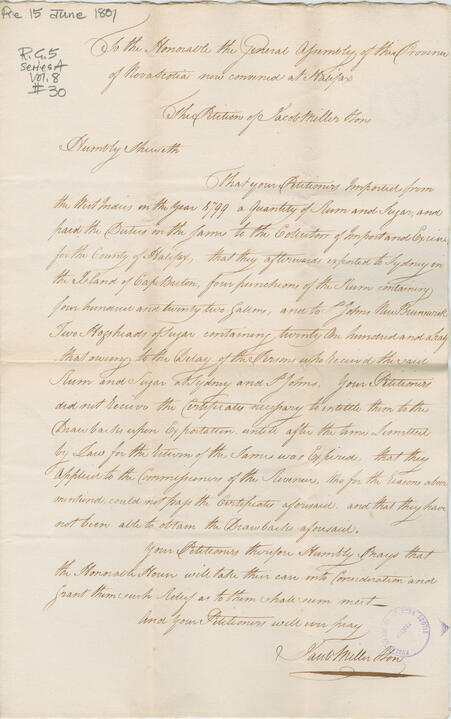 Pre 15 June 1801
R.G.5
Series A
Vol. 8
#30
To the Honorable the General Assembly of the Province
of Novascotia now convened at Halifax
The Petition of Jacob Miller & Son
Humbly Sheweth
That your Petitioners Imported from
the West Indies in the Year 1799 a quantity of Rum and Sugar, and
paid the Duties on the same to the Collectors of Impost and Excise
for the County of Halifax, that they afterward exported to Sydney in
the Island of Cape Breton, four puncheons of the Rum containing
four hundred and twenty two Gallons, and to St Johns New Brunswick
Two Hogsheads of Sugar containing twenty One hundred and
that owing to the Delay of the Persons who received the said
Rum and Sugar at Sydney and St Johns, Your Petitioners
did not Receive the Certificates necessary to entitle them to the
Drawbacks upon Exportation untill after the time Limitted
by Law for the Return of the Same was Expired, that they
applied to the Commissioners of the Revenue, who for the reasons above
mentiond, could not pass the Certificates aforesaid, and that they have
not been able to obtain the Drawbacks aforesaid.
Your Petitioners therefore Humbly Prays that
the Honorable House will take their case into Consideration and
Grant them such Relief as to them shall seem meet—
And your Petitioners will ever pray
Jacob Miller & Son